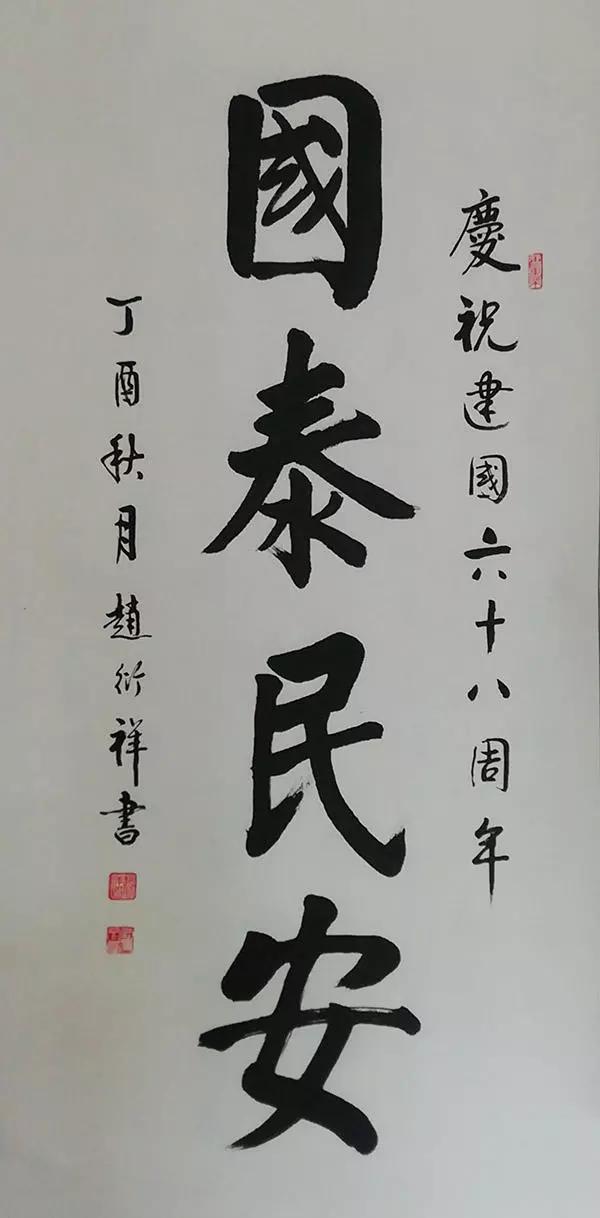 慶祝建國六十八周年
國泰民安
丁酉秋月趙衍祥書